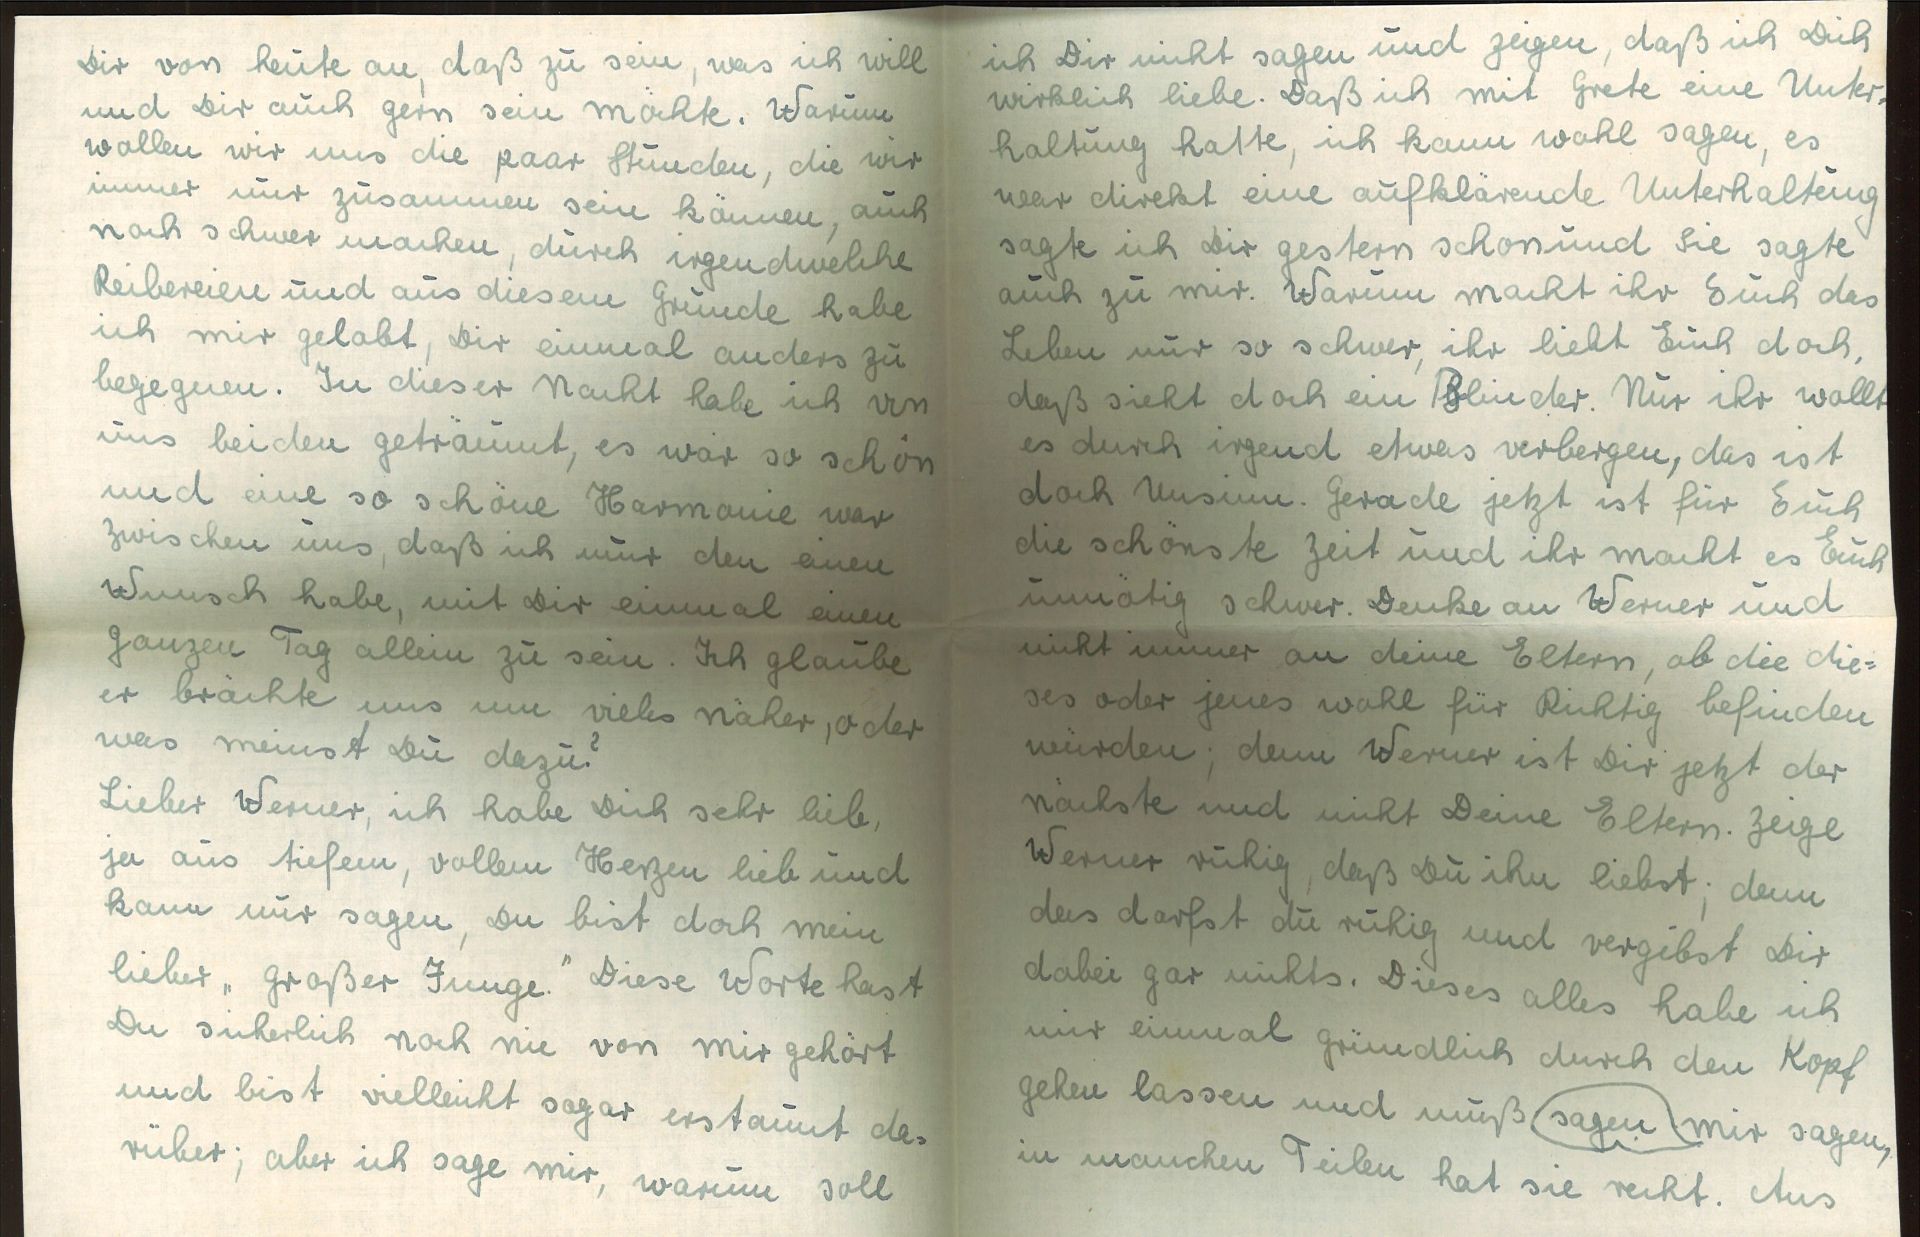 Dir von heute an, daß zu sein, was ich will
und Dir auch gern sein möchte. Warum
wollen wir uns die paar Stunden, die wir
immer nur zusammen sein können, auch
noch schwer machen, durch irgendwelche
Reibereien und aus diesem Grunde habe
ich mir gelobt, Dir einmal anders zu
begegnen. In dieser Nacht habe ich von
uns beiden geträumt, es war so schön
und eine so schöne Harmonie war
zwischen uns, daß ich nur den einen
Wunsch habe, mit Dir einmal einen
ganzen Tag allein zu sein. Ich glaube
er brächte uns um vieles näher, oder
was meinst Du dazu?
Lieber Werner, ich habe Dich sehr lieb,
ja aus tiefem, vollem Herzen lieb und
kann nur sagen, Du bist doch mein
lieber „großer Junge." Diese Worte hast
Du sicherlich noch nie von mir gehört
und bist vielleicht sogar erstaunt da=
rüber; aber ich sage mir, warum soll
ich Dir nicht sagen und zeigen, daß ich Dich
wirklich liebe. Daß ich mit Grete eine Unter=
haltung hatte, ich kann wohl sagen, es
war direkt eine aufklärende Unterhaltung
sagte ich Dir gestern schon und Sie sagte
auch zu mir. Warum macht ihr Euch das
Leben nur so schwer, ihr liebt Euch doch,
daß sieht doch ein Blinder. Nur ihr wollt
es durch irgend etwas verbergen, das ist
doch Unsinn. Gerade jetzt ist für Euch
die schönste Zeit und ihr macht es Euch
unnötig schwer. Denke an Werner und
nicht immer an deine Eltern, ob die die=
ses oder jenes wohl für Richtig befinden
würden; denn Werner ist Dir jetzt der
nächste und nicht Deine Eltern. Zeige
Werner ruhig, daß Du ihn liebst; denn
das darfst du ruhig und vergibst Dir
dabei gar nichts. Dieses alles habe ich
mir einmal gründlich durch den Kopf
gehen lassen und muß sagen mir sagen,
in manchen Teilen hat sie recht. Aus